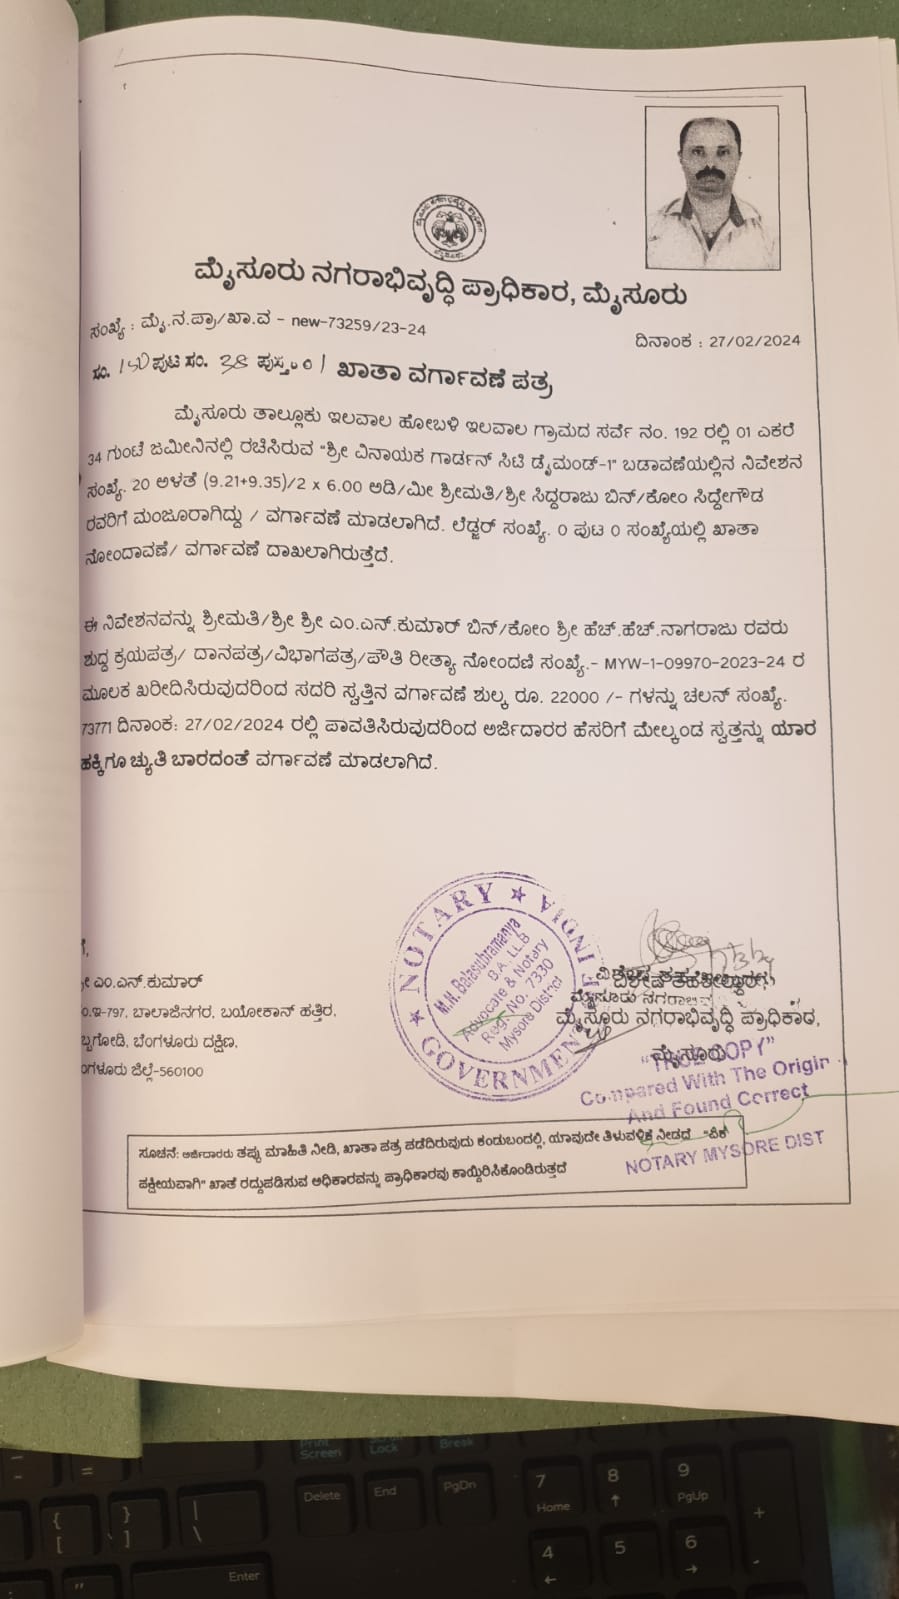 ಮೈಸೂರು ನಗರಾಭಿವೃದ್ಧಿ ಪ್ರಾಧಿಕಾರ, ಮೈಸೂರು
ಸಂಖ್ಯೆ : ಮೈ.ನ.ಪ್ರಾ/ಖಾ.ವ - new-73259/23-24
ದಿನಾಂಕ : 27/02/2024
ಸಂ. ಪುಟ ಸಂ. 38 ಖಾತಾ ವರ್ಗಾವಣೆ ಪತ್ರ
ಮೈಸೂರು ತಾಲ್ಲೂಕು ಇಲವಾಲ ಹೋಬಳಿ ಇಲವಾಲ ಗ್ರಾಮದ ಸರ್ವೆ ನಂ. 192 ರಲ್ಲಿ 01 ಎಕರೆ
34 ಗುಂಟೆ ಜಮೀನಿನಲ್ಲಿ ರಚಿಸಿರುವ "ಶ್ರೀ ವಿನಾಯಕ ಗಾರ್ಡನ್ ಸಿಟಿ ಡೈಮಂಡ್-1" ಬಡಾವಣೆಯಲ್ಲಿನ ನಿವೇಶನ
ಸಂಖ್ಯೆ. 20 ಅಳತೆ (9.21+9.35)/2 x 6.00 ಅಡಿ/ಮೀ ಶ್ರೀಮತಿ/ಶ್ರೀ ಸಿದ್ದರಾಜು ಬಿನ್/ಕೋಂ ಸಿದ್ದೇಗೌಡ
ರವರಿಗೆ ಮಂಜೂರಾಗಿದ್ದು / ವರ್ಗಾವಣೆ ಮಾಡಲಾಗಿದೆ. ಲೆಡ್ಜರ್ ಸಂಖ್ಯೆ. 0 ಪುಟ 0 ಸಂಖ್ಯೆಯಲ್ಲಿ ಖಾತಾ
ನೋಂದಾವಣೆ/ ವರ್ಗಾವಣೆ ದಾಖಲಾಗಿರುತ್ತದೆ.
ಈ ನಿವೇಶನವನ್ನು ಶ್ರೀಮತಿ/ಶ್ರೀ ಶ್ರೀ ಎಂ.ಎನ್.ಕುಮಾರ್ ಬಿನ್/ಕೋಂ ಶ್ರೀ ಹೆಚ್.ಹೆಚ್.ನಾಗರಾಜು ರವರು
ಶುದ್ಧ ಕ್ರಯಪತ್ರ/ ದಾನಪತ್ರ/ವಿಭಾಗಪತ್ರ/ಪೌತಿ ರೀತ್ಯಾ ನೋಂದಣಿ ಸಂಖ್ಯೆ.- MYW-1-09970-2023-24 ರ
ಮೂಲಕ ಖರೀದಿಸಿರುವುದರಿಂದ ಸದರಿ ಸ್ವತ್ತಿನ ವರ್ಗಾವಣೆ ಶುಲ್ಕ ರೂ. 22000 /- ಗಳನ್ನು ಚಲನ್ ಸಂಖ್ಯೆ.
73771 ದಿನಾಂಕ: 27/02/2024 ರಲ್ಲಿ ಪಾವತಿಸಿರುವುದರಿಂದ ಅರ್ಜಿದಾರರ ಹೆಸರಿಗೆ ಮೇಲ್ಕಂಡ ಸ್ವತ್ತನ್ನು ಯಾರ
ಹಕ್ಕಿಗೂ ಚ್ಯುತಿ ಬಾರದಂತೆ ವರ್ಗಾವಣೆ ಮಾಡಲಾಗಿದೆ.
ಎಂ.ಎನ್.ಕುಮಾರ್
ಬಾಲಾಜಿನಗರ, ಬಯೋಕಾನ್ ಹತ್ತಿರ,
ಬೆಂಗಳೂರು ದಕ್ಷಿಣ,
ಜಿಲ್ಲೆ-560100
NOTARY
GOVERNMENT OF INDIA
M.N. Balasubramanya
B.A. LL.B
Advocate & Notary
Reg. No. 7330
Mysore District
ಮೈಸೂರು ನಗರಾಭಿವೃದ್ಧಿ ಪ್ರಾಧಿಕಾರ,
ಮೈಸೂರು
"TRUE COPY"
Compared With The Origin
And Found Correct
NOTARY MYSORE DIST
ಸೂಚನೆ: ಅರ್ಜಿದಾರರು ತಪ್ಪು ಮಾಹಿತಿ ನೀಡಿ, ಖಾತಾ ಪತ್ರ ಪಡೆದಿರುವುದು ಕಂಡುಬಂದಲ್ಲಿ, ಯಾವುದೇ ತಿಳುವಳಿಕೆ ನೀಡದೆ "ಏಕ
ಪಕ್ಷೀಯವಾಗಿ" ಖಾತೆ ರದ್ದುಪಡಿಸುವ ಅಧಿಕಾರವನ್ನು ಪ್ರಾಧಿಕಾರವು ಕಾಯ್ದಿರಿಸಿಕೊಂಡಿರುತ್ತದೆ
Print Screen
Scroll Lock
Break
Delete
End
PgDn
7 Home
8
9 PgUp
4
5
6
+
{ [
} ]
| \
Enter